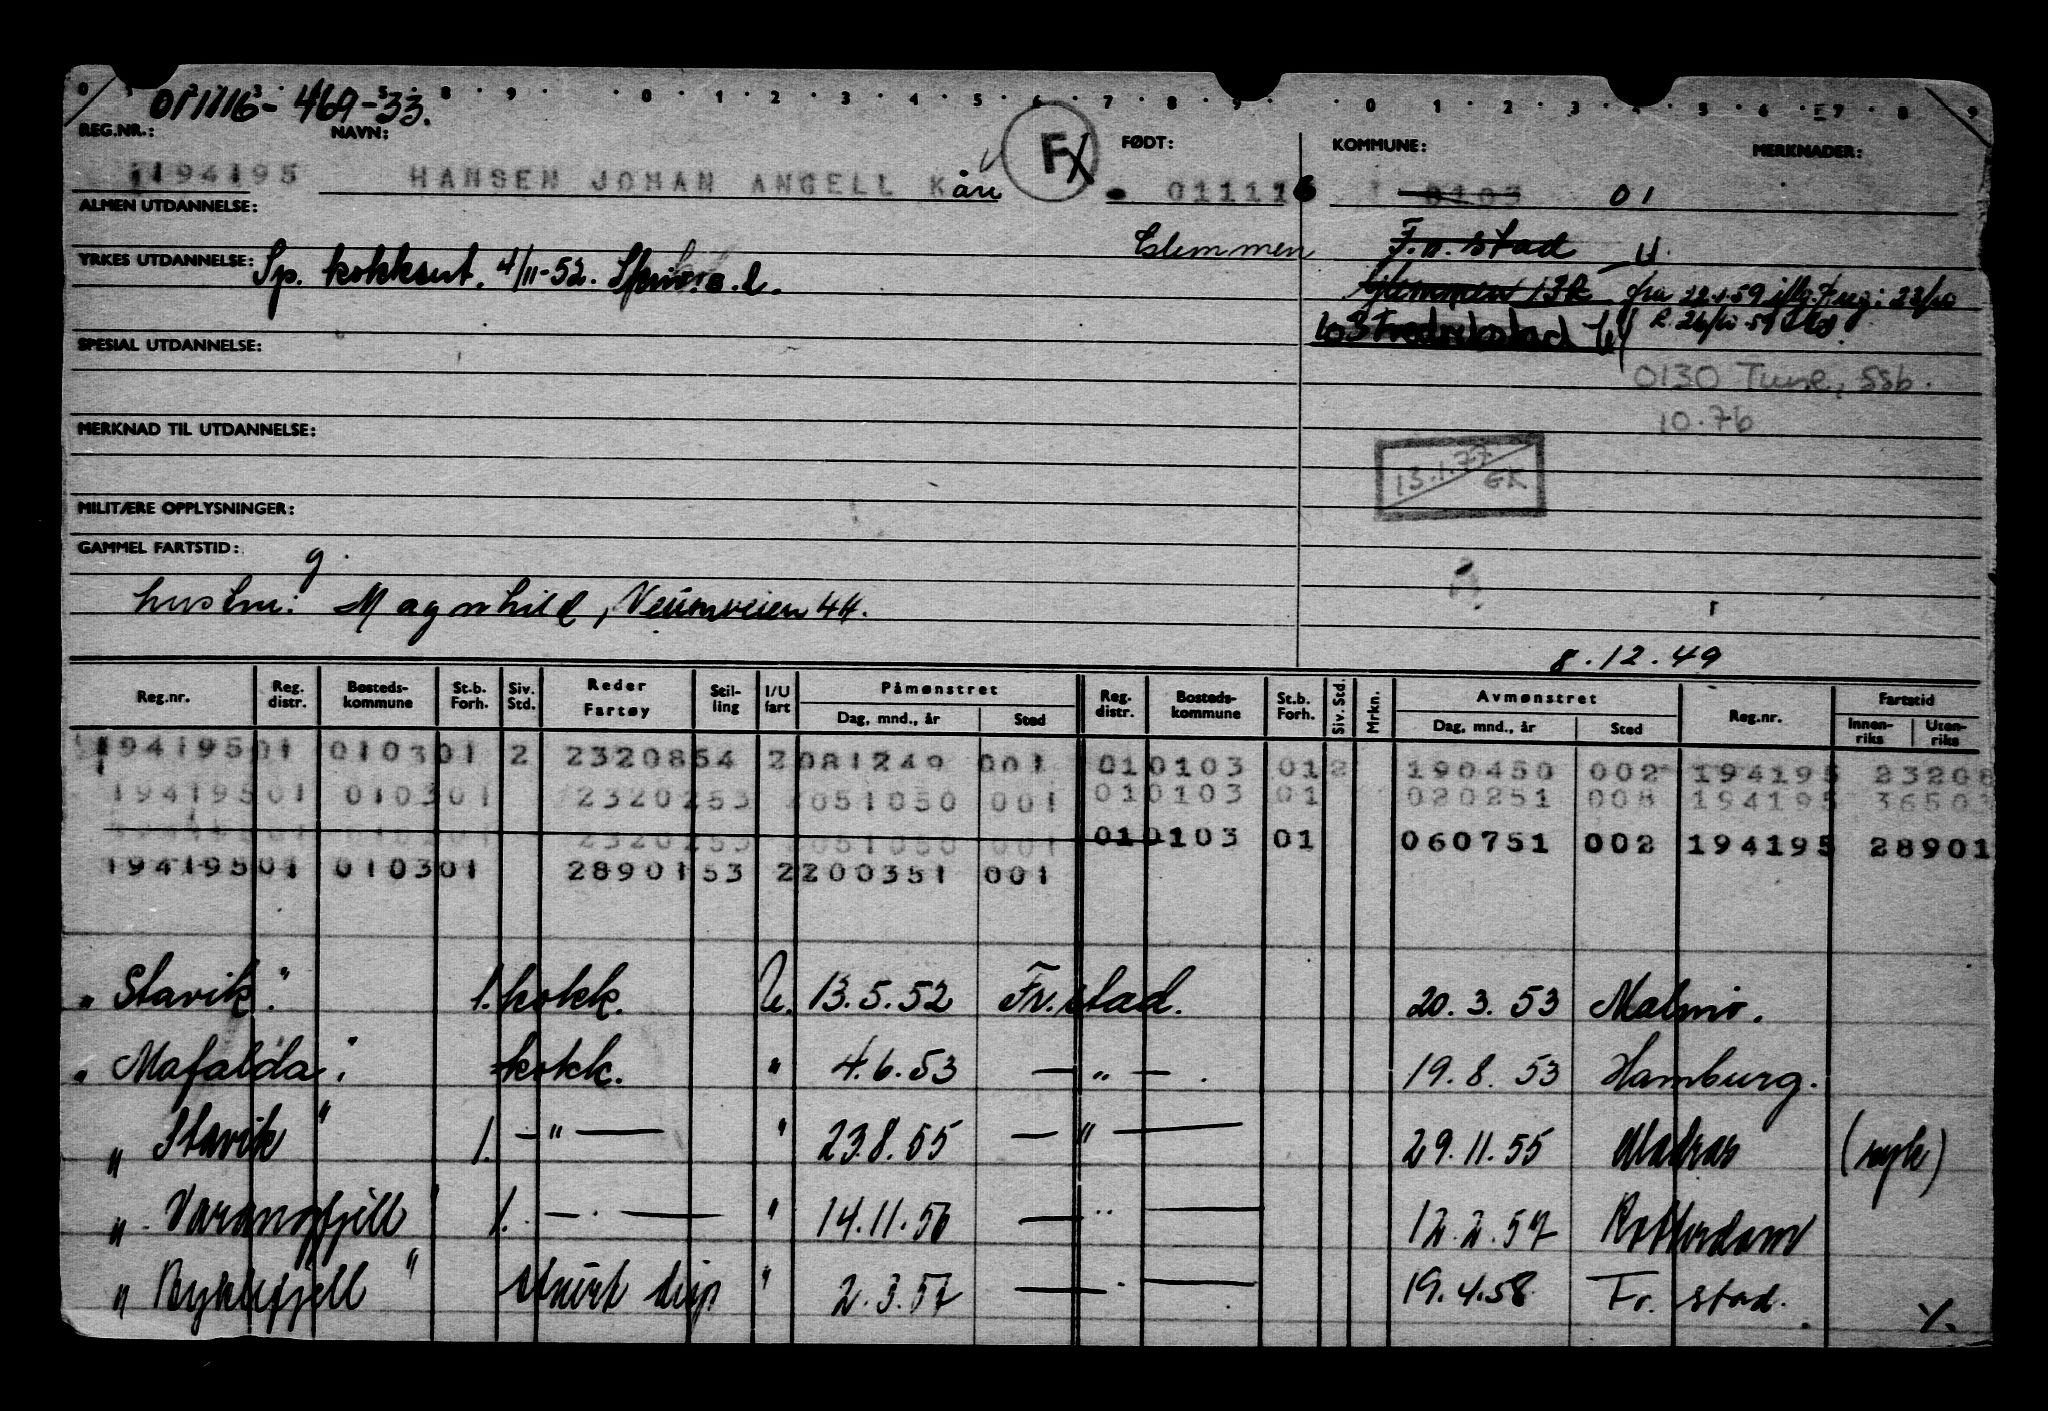 011116-469-33.
REG.NR.: NAVN: FØDT: KOMMUNE: MERKNADER:
194195 HANSEN JOHAN ANGELL Kåre F 011116 0103 01
ALMEN UTDANNELSE:
Glemmen Fr.stad U
YRKES UTDANNELSE: Sp. kokksert. 4/11-52.
Glemmen 132 fra 22.1.59
Fredrikstad
SPESIAL UTDANNELSE:
0130 Tune, SSb.
10.76
MERKNAD TIL UTDANNELSE:
13.1.77 GK
MILITÆRE OPPLYSNINGER:
GAMMEL FARTSTID:
g.
hustru: Magnhild, Veumveien 44.
8.12.49
Reg.nr. Reg. distr. Bosteds-kommune St.b. Forh. Siv. Std. Reder Fartøy Stil-ling I/U fart Påmønstret Dag, mnd., år Sted Reg. distr. Bosteds-kommune St.b. Forh. Siv. Std. Mrkn. Avmønstret Dag, mnd., år Sted Reg.nr. Fartstid Innen-riks Uten-riks
194195 01 0103 01 2 23208 54 2 081249 001 01 0103 01 2 190450 002 194195 23208
194195 01 0103 01 23202 53 051050 001 01 0103 01 020251 008 194195 36503
23202 53 051050 001 01 0103 01 060751 002 194195 28901
194195 01 0103 01 28901 53 2 200351 001
" Stavik." 1. kokk. U. 13.5.52 Fr.stad. 20.3.53 Malmö.
" Mafalda." kokk. " 4.6.53 — " — . 19.8.53 Hamburg.
" Stavik " 1. — " — " 23.8.55 — " — 29.11.55 Madras (syk)
" Varangfjell " 1. — . — " 14.11.56 — " — 12.2.57 Rotterdam
" Rykkefjell " stuert disp " 2.3.57 — " — 19.4.58 Fr. stad.